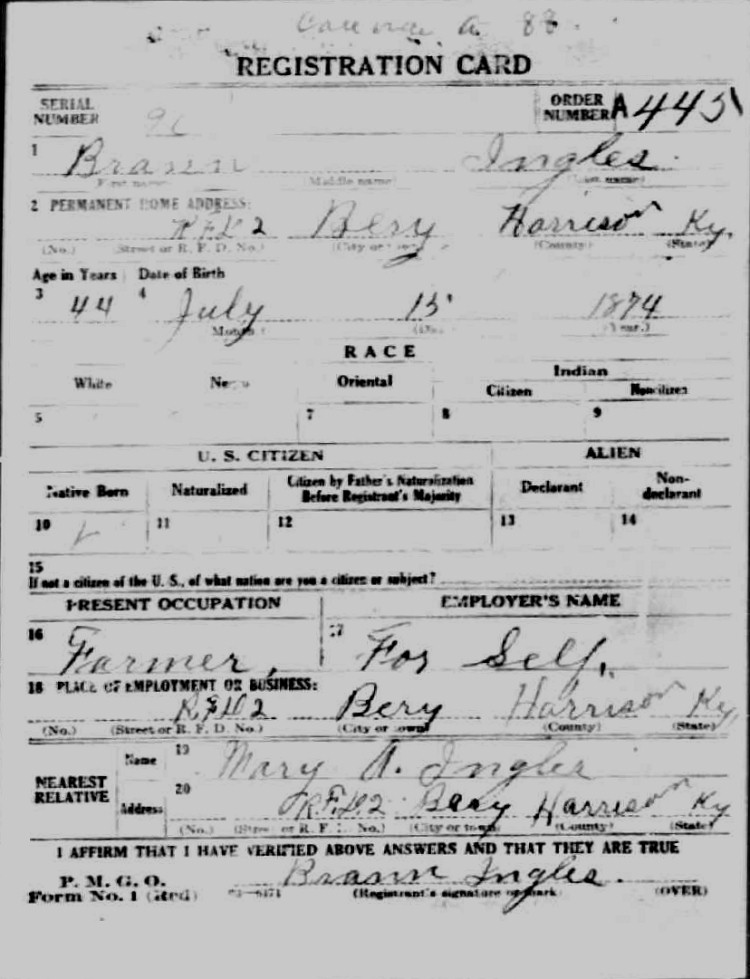 REGISTRATION CARD
SERIAL NUMBER ORDER NUMBER A 445
1 Brann Ingles.
(First name) (Middle name) (Last name)
2 PERMANENT HOME ADDRESS:
R F D 2 Bery Harrison Ky.
(No.) (Street or R. F. D. No.) (City or town) (County) (State)
Age in Years Date of Birth
3 44 4 July 15 1874
(Month) (Day) (Year.)
RACE
White Negro Oriental Indian
Citizen Noncitizen
5 7 8 9
U. S. CITIZEN ALIEN
Native Born Naturalized Citizen by Father's Naturalization Before Registrant's Majority Declarant Non-declarant
10 ✓ 11 12 13 14
15
If not a citizen of the U. S., of what nation are you a citizen or subject?
PRESENT OCCUPATION EMPLOYER'S NAME
16 Farmer, 17 For Self.
18 PLACE OF EMPLOYMENT OR BUSINESS:
R F D 2 Bery Harrison Ky
(No.) (Street or R. F. D. No.) (City or town) (County) (State)
NEAREST RELATIVE
Name 19 Mary A. Ingles
Address 20 R.F.D2 Bery Harrison Ky
(No.) (Street or R. F. D. No.) (City or town) (County) (State)
I AFFIRM THAT I HAVE VERIFIED ABOVE ANSWERS AND THAT THEY ARE TRUE
P. M. G. O.
Form No. 1 (Red) Brann Ingles.
(Registrant's signature or mark) (OVER)